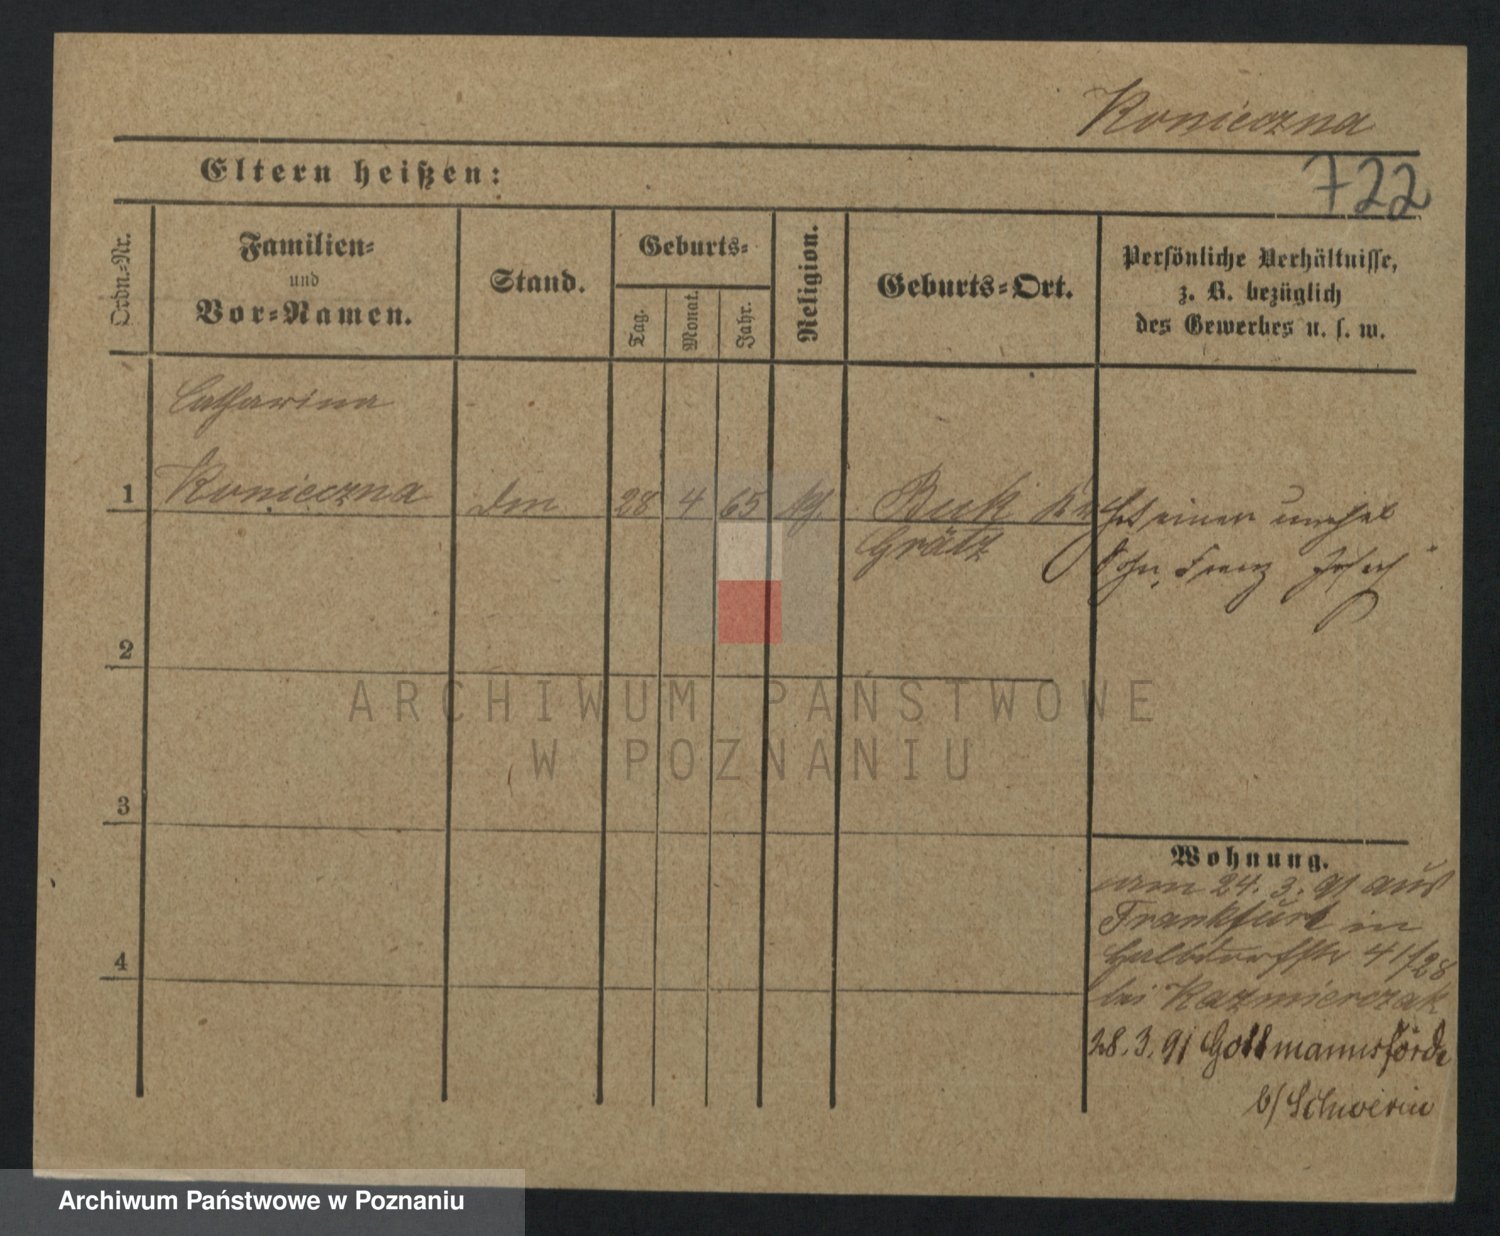 Konieczna
Eltern heißen:
722
Ordn.-Nr.
Familien-
und
Vor-Namen.
Stand.
Geburts-
Tag.
Monat.
Jahr.
Religion.
Geburts-Ort.
Persönliche Verhältnisse,
z. B. bezüglich
des Gewerbes u. s. w.
Catharina
1 Konieczna 28 4 65 Buk Kr
Grätz
Hat einen unehel
Sohn, Franz Josef
2
ARCHIWUM PAŃSTWOWE
W POZNANIU
3
Wohnung.
am 24. 3. 91 aus
Frankfurt in
Halbdorfstr 41/28
bei Kazmierczak
4
28. 3. 91 Gottmannsförde
b/ Schwerin
Archiwum Państwowe w Poznaniu